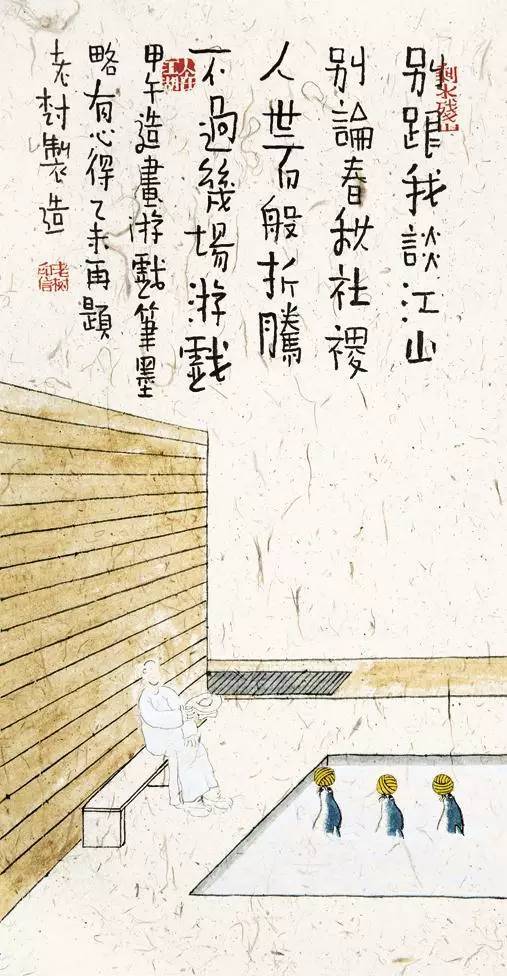 别跟我談江山
别論春秋社稷
人世百般折騰
不過幾場游戲
甲午造畫游戲筆墨
略有心得乙未再題
老树製造
剩水殘山
人在江湖